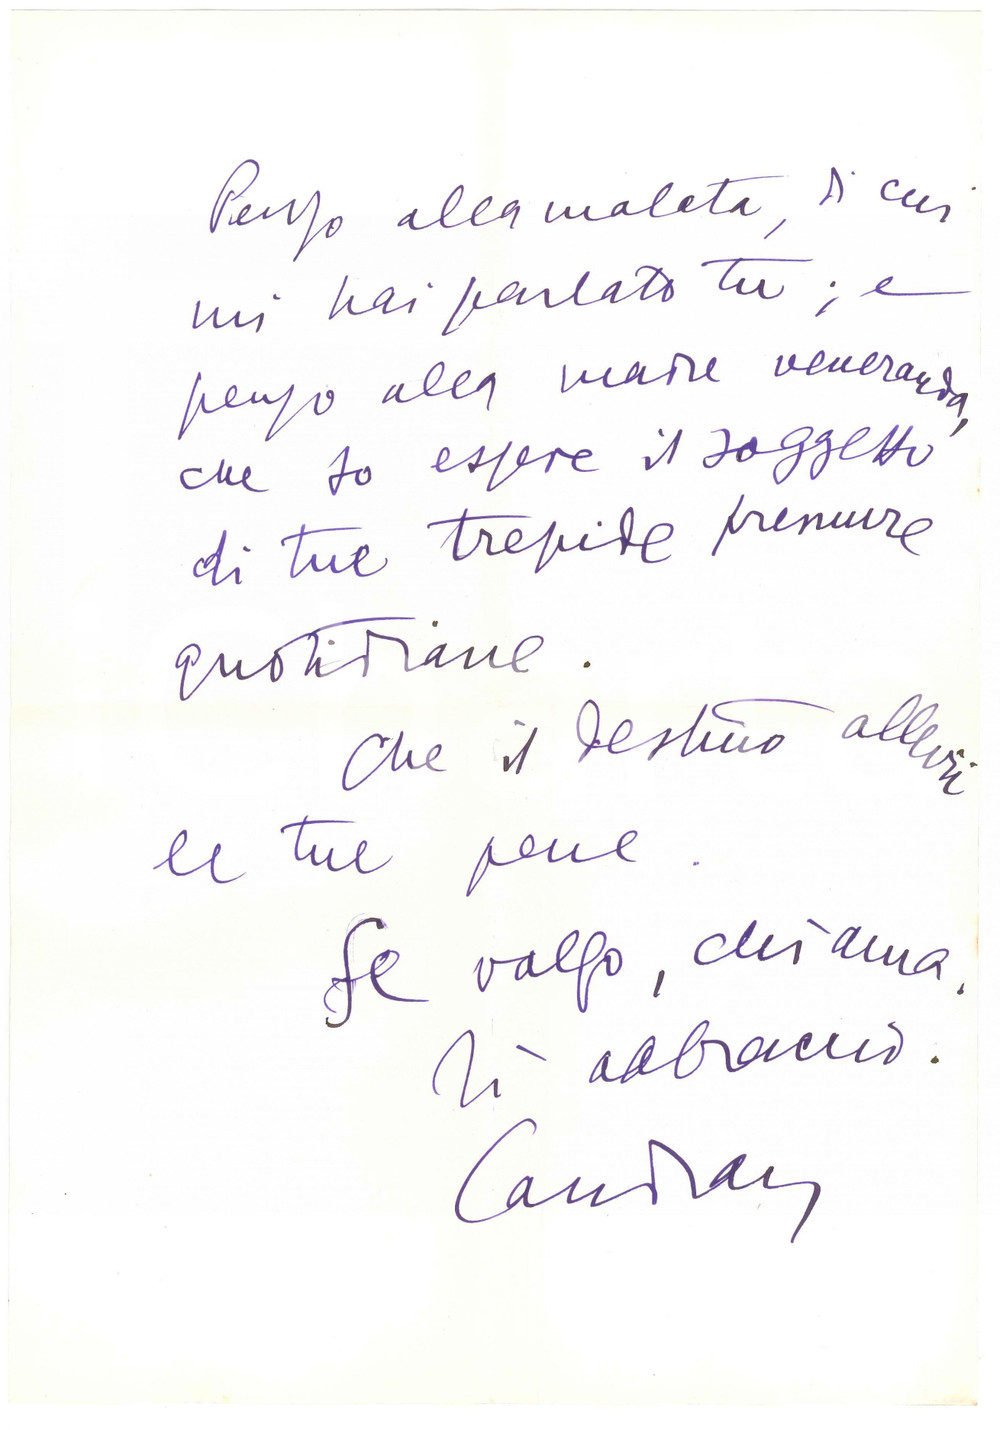 Penso alla malata, di cui
mi hai parlato tu; e
penso alla madre veneranda,
che so essere il soggetto
di tue trepide premure
quotidiane.
Che il destino allevii
le tue pene.
Se valgo, chiama.
Ti abbraccio.